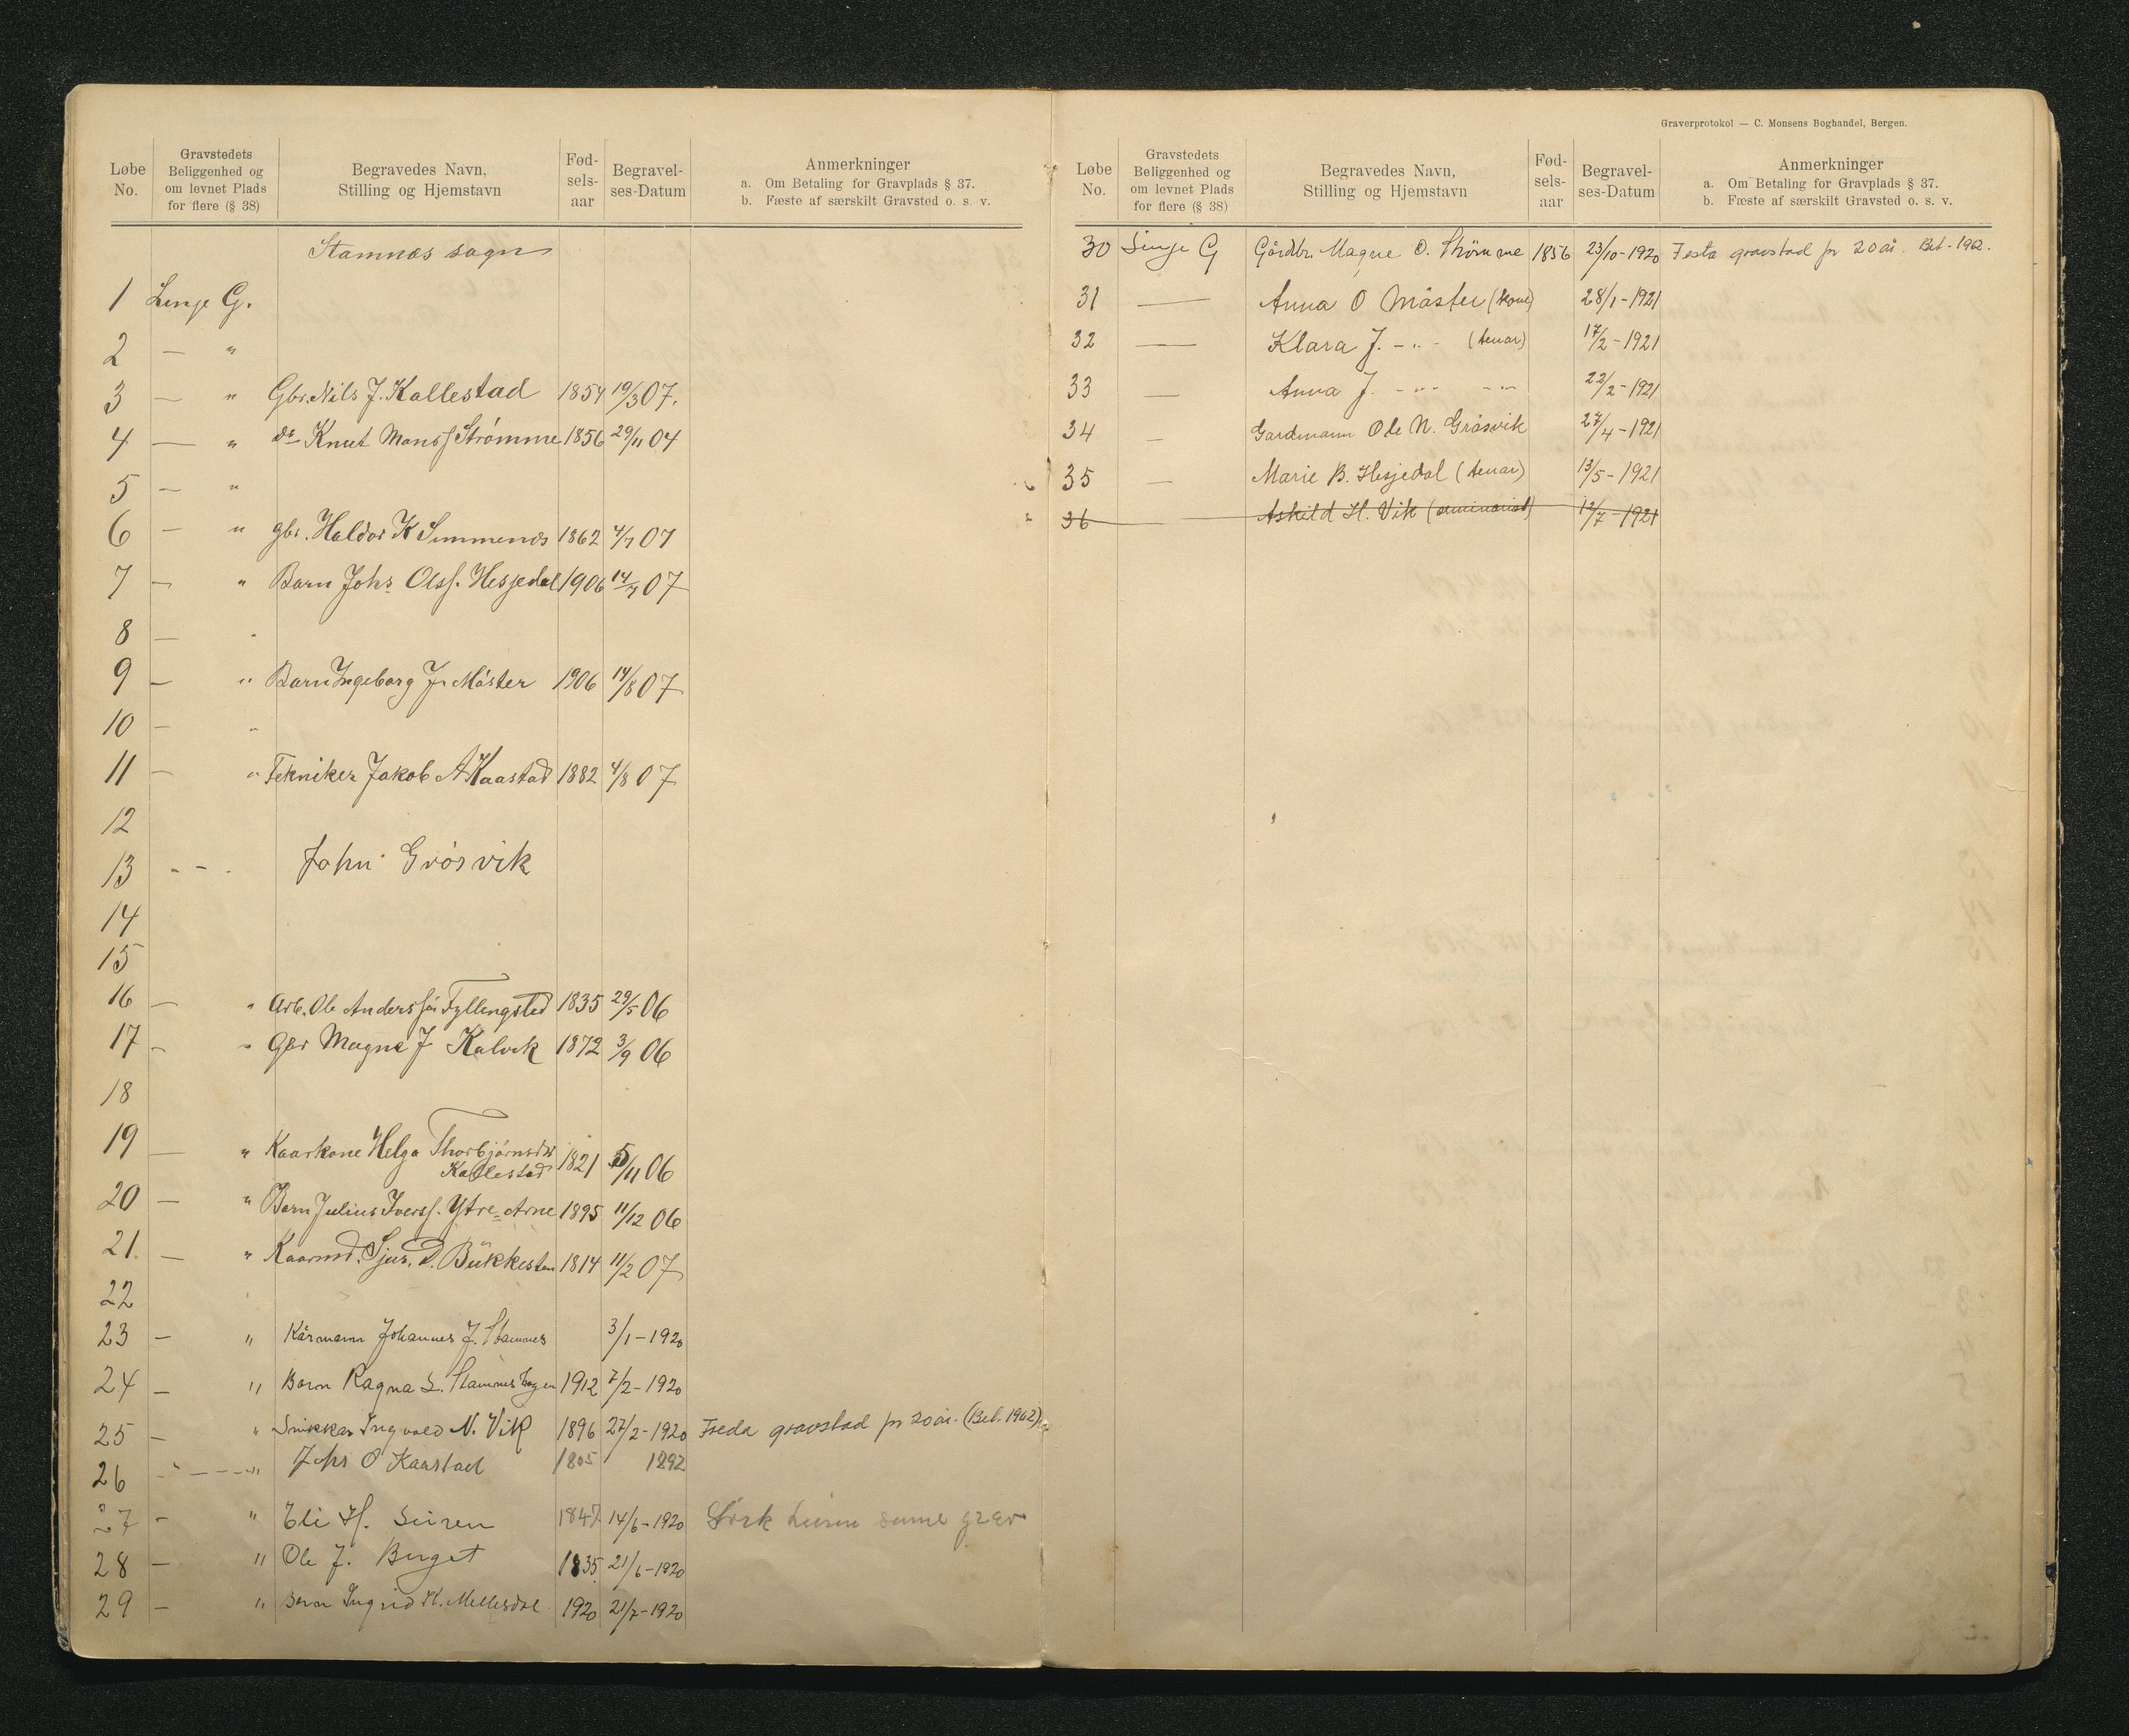 Løbe No.
Gravstedets Beliggenhed og om levnet Plads for flere (§ 38)
Begravedes Navn, Stilling og Hjemstavn
Fød-sels-aar
Begravel-ses-Datum
Anmerkninger
a. Om Betaling for Gravplads § 37.
b. Fæste af særskilt Gravsted o. s. v.
Stamnes sogn
1 Linje G.
2 — "
3 — " Gbr. Nils J. Kallestad 1854 19/3 07.
4 — " do Knut Monss Strømme 1856 29/11 04
5 — "
6 — " gbr. Haldor K Simmenes 1862 4/7 07
7 — " Barn Johs Olss. Hesjedal 1906 14/7 07
8 — "
9 — " Barn Ingeborg J. Måster 1906 14/8 07
10 — "
11 — " Tekniker Jakob A Kaastad 1882 4/8 07
12
13 - - - John Gråsvik
14
15
16 — " Arb. Ole Anderssøn Fyllingsted 1835 29/5 06
17 — " Gbr Magne J Kalvik 1872 3/9 06
18
19 — " Kaarkone Helga Thorbjørnsdtr
Kallestad 1821 5/11 06
20 — " Barn Julius Iverss. Ytre-Arne 1895 11/12 06
21. — " Kaarmd. Sjur. D. Bükkesten 1814 11/2 07
22
23 — " Kårmann Johannes J. Stamnes 3/1-1920
24 — " Barn Ragna L. Stamneshagen 1912 7/2-1920
25 — " Snikkar Ingvald N. Vik 1896 27/2-1920 gravstad pr 20 år. (Bet. 1962)
26 - - - - " Johs O Kaastad 1805 1892
27 - " Eli H. 1847 14/6-1920 grav
28 — " Ole J. Berget 1835 21/6-1920
29 — " Barn Ingrid K. Mellesdal 1920 21/7-1920
Graverprotokol — C. Monsens Boghandel, Bergen.
Løbe No.
Gravstedets Beliggenhed og om levnet Plads for flere (§ 38)
Begravedes Navn, Stilling og Hjemstavn
Fød-sels-aar
Begravel-ses-Datum
Anmerkninger
a. Om Betaling for Gravplads § 37.
b. Fæste af særskilt Gravsted o. s. v.
30 Linje G Gårdbr. Magne O. Strömme 1856 23/10-1920 Festa gravstad pr 20 år. Bet-1962.
31 — Anna O Måster (kone) 28/1-1921
32 — Klara J. - " - (tenar) 17/2-1921
33 — Anna J. - " - - " - 22/2-1921
34 — Gardmann Ole N. Gråsvik 27/4-1921
35 — Marie B. Hesjedal (tenar) 13/5-1921
36 — Askild H. Vik (seminarist) 12/7-1921